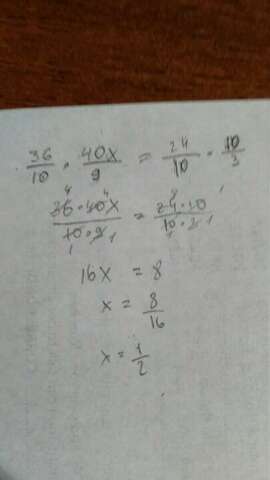 36/10 · 40x/9 = 24/10 · 10/3
36·40x/10·9 = 24·10/10·3
16x = 8
x = 8/16
x = 1/2